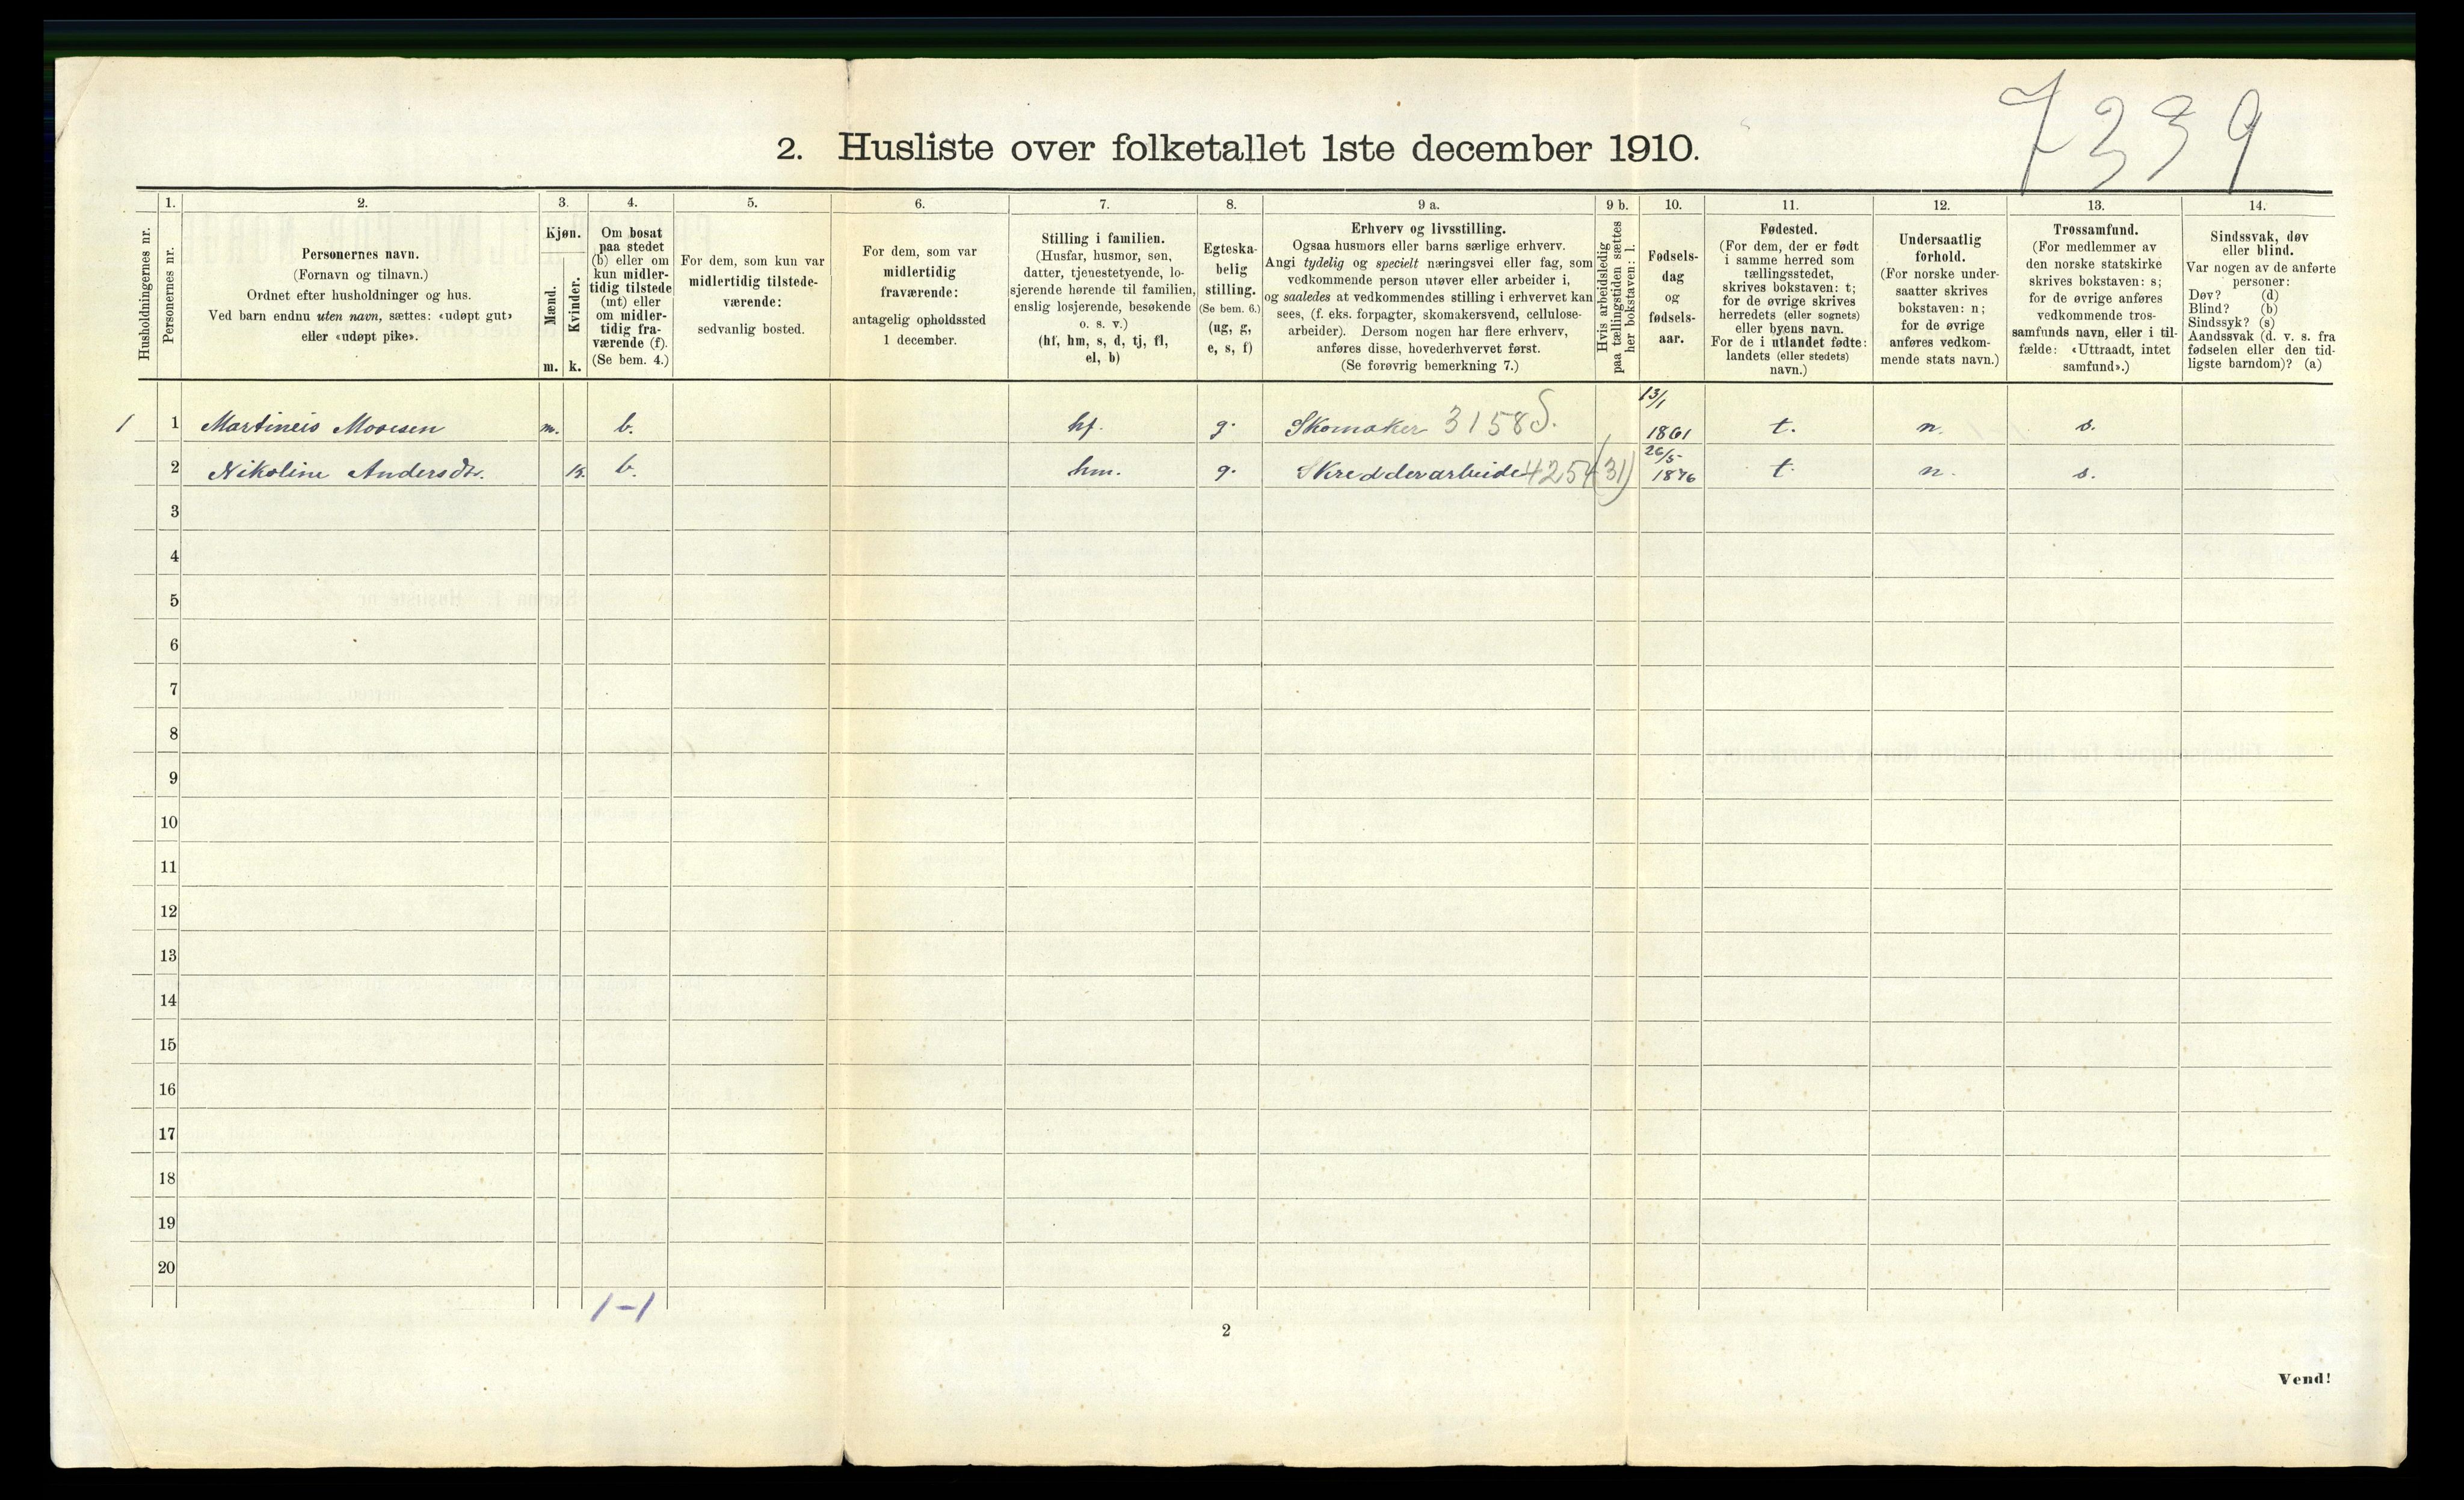 7339
2. Husliste over folketallet 1ste december 1910.
Husholdningernes nr.
1.
Personernes nr.
2.
Personernes navn.
(Fornavn og tilnavn.)
Ordnet efter husholdninger og hus.
Ved barn endnu uten navn, sættes: «udøpt gut»
eller «udøpt pike».
3.
Kjøn.
Mænd.
Kvinder.
m. k.
4.
Om bosat
paa stedet
(b) eller om
kun midler-
tidig tilstede
(mt) eller
om midler-
tidig fra-
værende (f).
(Se bem. 4.)
5.
For dem, som kun var
midlertidig tilstede-
værende:
sedvanlig bosted.
6.
For dem, som var
midlertidig
fraværende:
antagelig opholdssted
1 december.
7.
Stilling i familien.
(Husfar, husmor, søn,
datter, tjenestetyende, lo-
sjerende hørende til familien,
enslig losjerende, besøkende
o. s. v.)
(hf, hm, s, d, tj, fl,
el, b)
8.
Egteska-
belig
stilling.
(Se bem. 6.)
(ug, g,
e, s, f)
9 a.
Erhverv og livsstilling.
Ogsaa husmors eller barns særlige erhverv.
Angi tydelig og specielt næringsvei eller fag, som
vedkommende person utøver eller arbeider i,
og saaledes at vedkommendes stilling i erhvervet kan
sees, (f. eks. forpagter, skomakersvend, cellulose-
arbeider). Dersom nogen har flere erhverv,
anføres disse, hovederhvervet først.
(Se forøvrig bemerkning 7.)
9 b.
Hvis arbeidsledig
paa tællingstiden sættes
her bokstaven: l.
10.
Fødsels-
dag
og
fødsels-
aar.
11.
Fødested.
(For dem, der er født
i samme herred som
tællingsstedet,
skrives bokstaven: t;
for de øvrige skrives
herredets (eller sognets)
eller byens navn.
For de i utlandet fødte:
landets (eller stedets)
navn.)
12.
Undersaatlig
forhold.
(For norske under-
saatter skrives
bokstaven: n;
for de øvrige
anføres vedkom-
mende stats navn.)
13.
Trossamfund.
(For medlemmer av
den norske statskirke
skrives bokstaven: s;
for de øvrige anføres
vedkommende tros-
samfunds navn, eller i til-
fælde: «Uttraadt, intet
samfund».)
14.
Sindssvak, døv
eller blind.
Var nogen av de anførte
personer:
Døv? (d)
Blind? (b)
Sindssyk? (s)
Aandssvak (d. v. s. fra
fødselen eller den tid-
ligste barndom)? (a)
1 1 Martineis m. b. hf. g. Skomaker 3158 S. 13/1 1861 t. n. s.
2 Nikoline Andersdr. k. b. hm. g. Skredderarbeide 4254 (31) 26/5 1876 t n. s.
3
4
5
6
7
8
9
10
11
12
13
14
15
16
17
18
19
20
1-1
2
Vend!